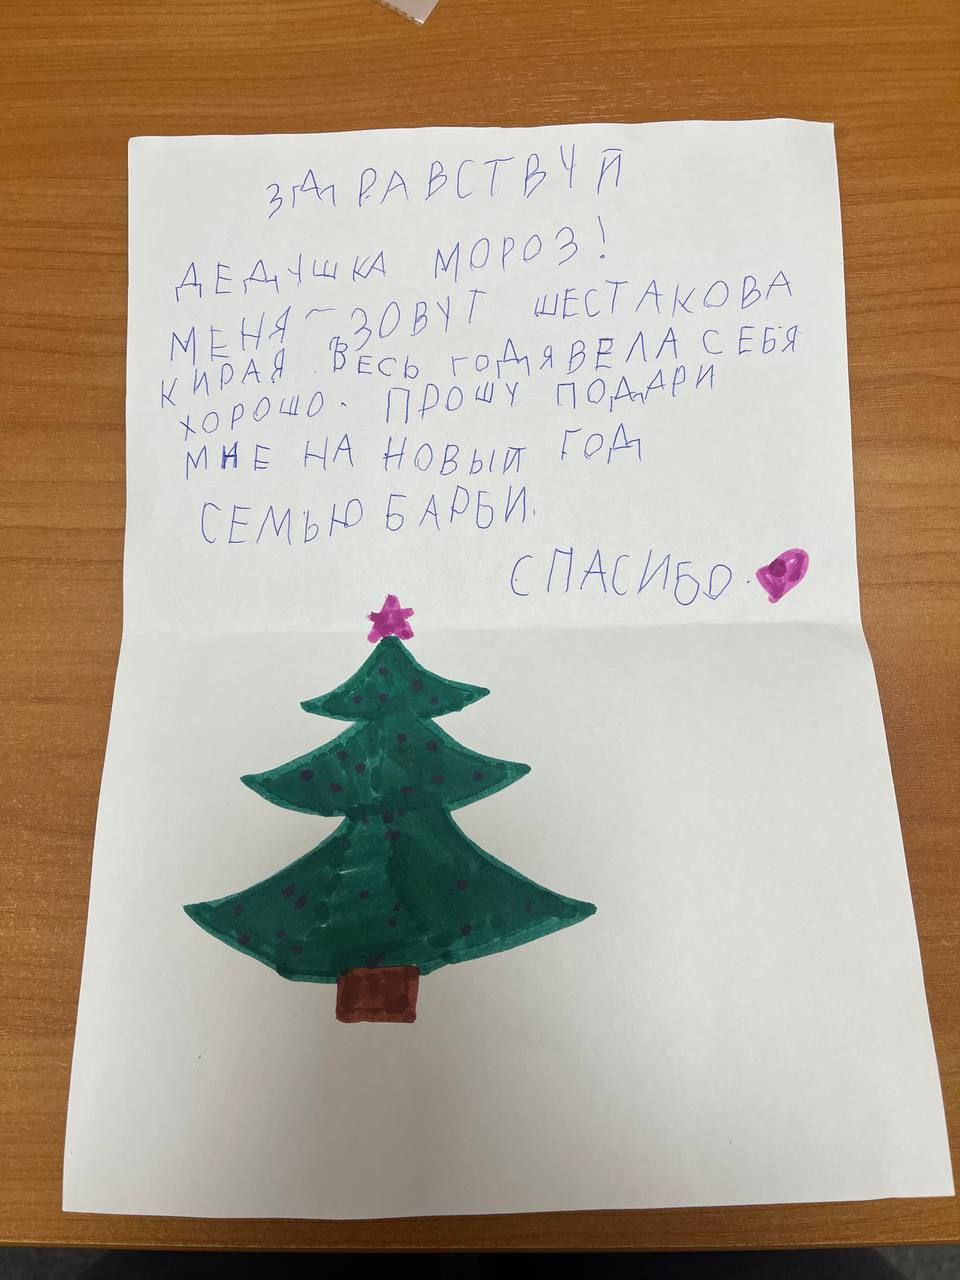 ЗДРАВСТВУЙ
ДЕДУШКА МОРОЗ!
МЕНЯ ЗОВУТ ШЕСТАКОВА
КИРАЯ. ВЕСЬ ГОД Я ВЕЛА СЕБЯ
ХОРОШО. ПРОШУ ПОДАРИ
МНЕ НА НОВЫЙ ГОД
СЕМЬЮ БАРБИ.
СПАСИБО.